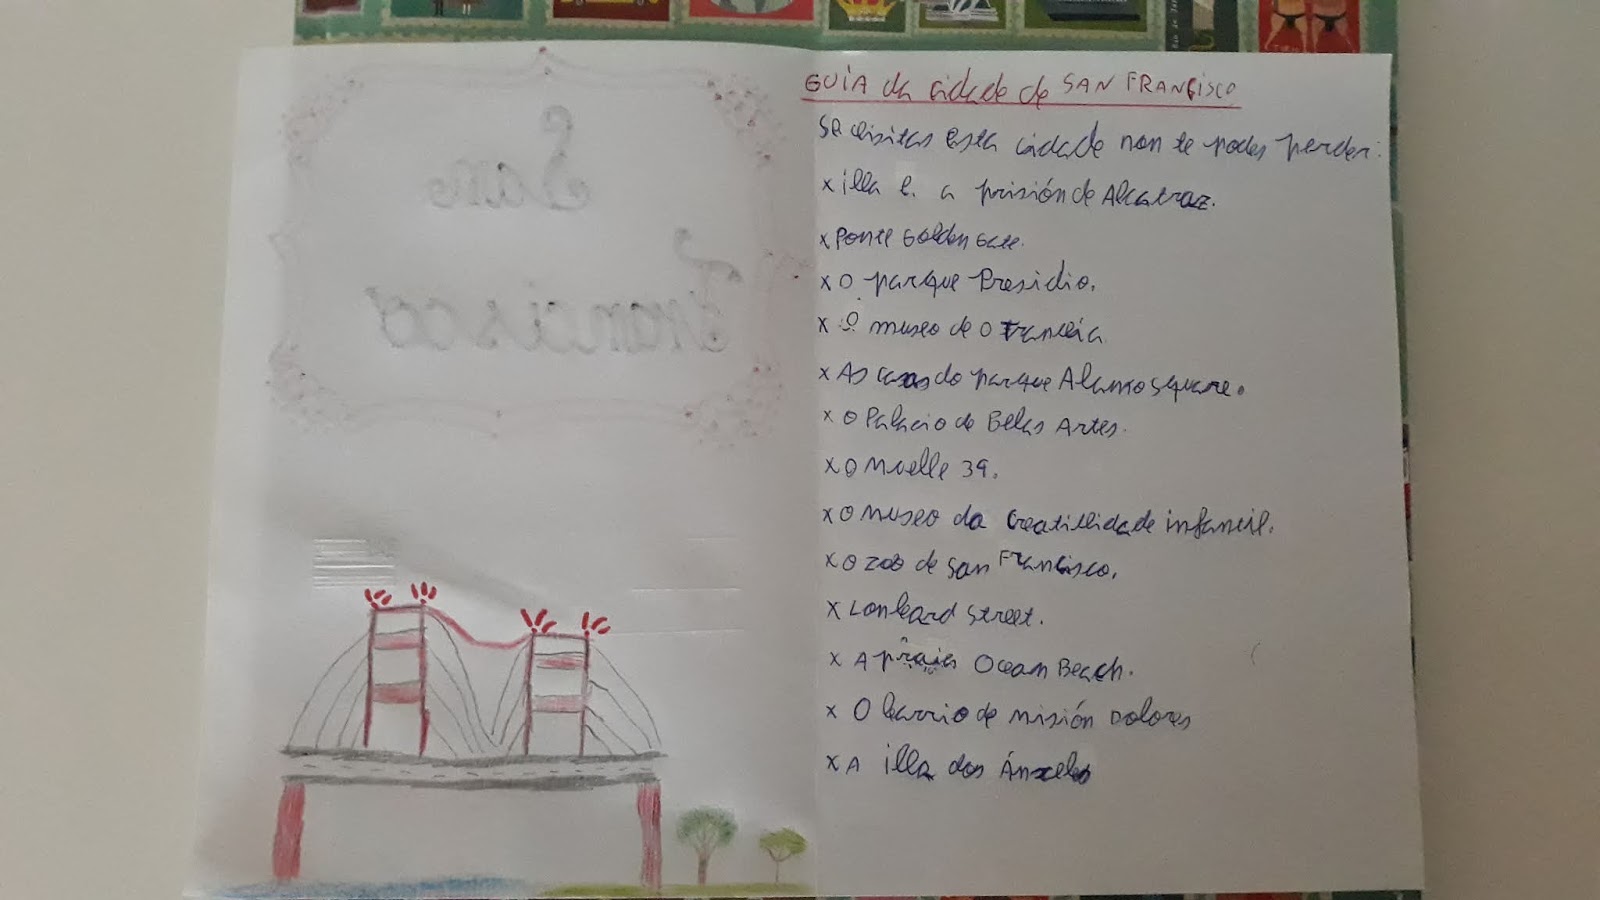 San
Francisco
GUÍA da cidade de SAN FRANCISCO
Se visitas esta cidade non te podes perder:
x illa e a prisión de Alcatraz.
x Ponte Golden Gate.
x O parque Presidio.
x O museo de
x As casas do parque Alamo square.
x O Palacio de Bellas Artes.
x O Muelle 39.
x O museo da Creatillidade infantil.
x O zoo de San Francisco.
x Lombard Street.
x A praia Ocean Beach.
x O barrio de misión Dolores
x A illa dos Ánxeles